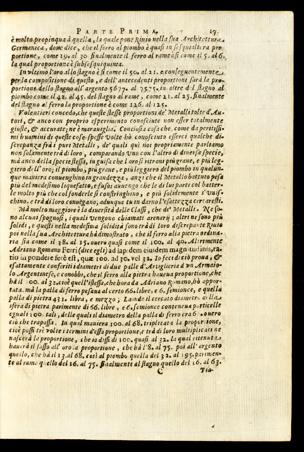 PARTE PRIMA. 17
è molto propinqua à quella, la quale pone Rivio nella sua Architettura
Germanica, dove dice, che il ferro al piombo è quasi in sesquialtera pro
portione, come 19. al 30 finalmente il ferro al rame così come il 5. al 6.
la qual proportione è subsesquiquinta.
In ultimo l'oro allo stagno è sì come il 50. al 21. e conseguentemente
per la compositione di questo, e dell'antecedenti proportioni sarà la pro
portione dello stagno all'argento 5677. al 7575. in oltre del stagno al
piombo come il 42. al 45. dal stagno al rame, come 21. al 25. finalmente
del stagno al ferro la proportione è come 126. al 125.
Volentieri concedo, che queste stesse proportioni de' Metalli tolte d'Au
tori, & anco con proprio esperimento conosciute non esser totalmente
giuste, & accurate; nè è maraviglia. Conciosia cosa che, come da peritis
simi huomini de queste cose spesse volte hò conosciuto essersi qualche di
screpanza frà i puri Metalli, de' quali quì noi propriamente parliamo
non solamente trà di loro, comparando l'uno con l'altro di diversa specie,
mà anco della specie stessa, in guisa che l'oro si ritrovi più grave, e più leg
giero dell'oro; il piombo, più grave, e più leggiero del piombo in qualun
que maniera convenghino in grandezza, anzi che il Metallo battuto pesa
più del medesimo liquefatto, e fuso avvenga che le di lui parti col batter
le molto più che col fonderle si constringhino, e più facilmente s'unif
chino, e trà di loro convengano, adunque in van darno l'esattezza cerca resti.
Mà molto maggiore è la diversità delle Classi, che de' Metalli. Se [...]
no alcuni spugnosi, i quali vengono chiamati arenarij; altri ne sono più
sodi, e questi nella medesima sodezza sono trà di loro
per nella sua Architettura hà dimostrato, che il ferro alla pietra ordina
ria sia come il 38. al 15. overo quasi come il 100. al 40. Altrimente
Adriano Romano Ferri (dire egli) ad lapidem eiusdem magnitudinis, ra
tio in pondere ferè est, quæ 100. ad 30. vel 32. Io feci di ciò prova, &
esattamente conferiti i diametri di due palle d'Artiglieria d'un Armatio
lo Argentinense, è concluso, che il ferro alla pietra haveva proportione, che
hà il 100. al 32. cioè quell'istessa, che hora da Adriano Romano, hò appor
tate. mà la palla di ferro pesava di certo 66. libre, e 6. semioncie, e quella
palla di pietra 21. libra, e mezzo; Laonde il cercato diametro della
sfera di pietra parimente di 66. libre, e 6. semioncie conteneva particelle
eguali 100. tali, delle quali il diametro della palla di ferro era 68 overo
ciò che trapassa. In qual maniera 100. al 68, triplicata la proportione,
cioè posti tre volte i termini d'essa proportione, e trà di loro multiplicati ne
nascerà la proportione, che io dissi di 100. quasi al 32. la qual ritenuta
haverà il sasso all'oro la proportione, che hà l'8. al 75. poi all'argento
quello, che hà il 23. al 68, cosi al piombo quella del 32. al 195. parimen
te al rame quella del 16. al 75. finalmente al stagno quello del 16. al 63.
C